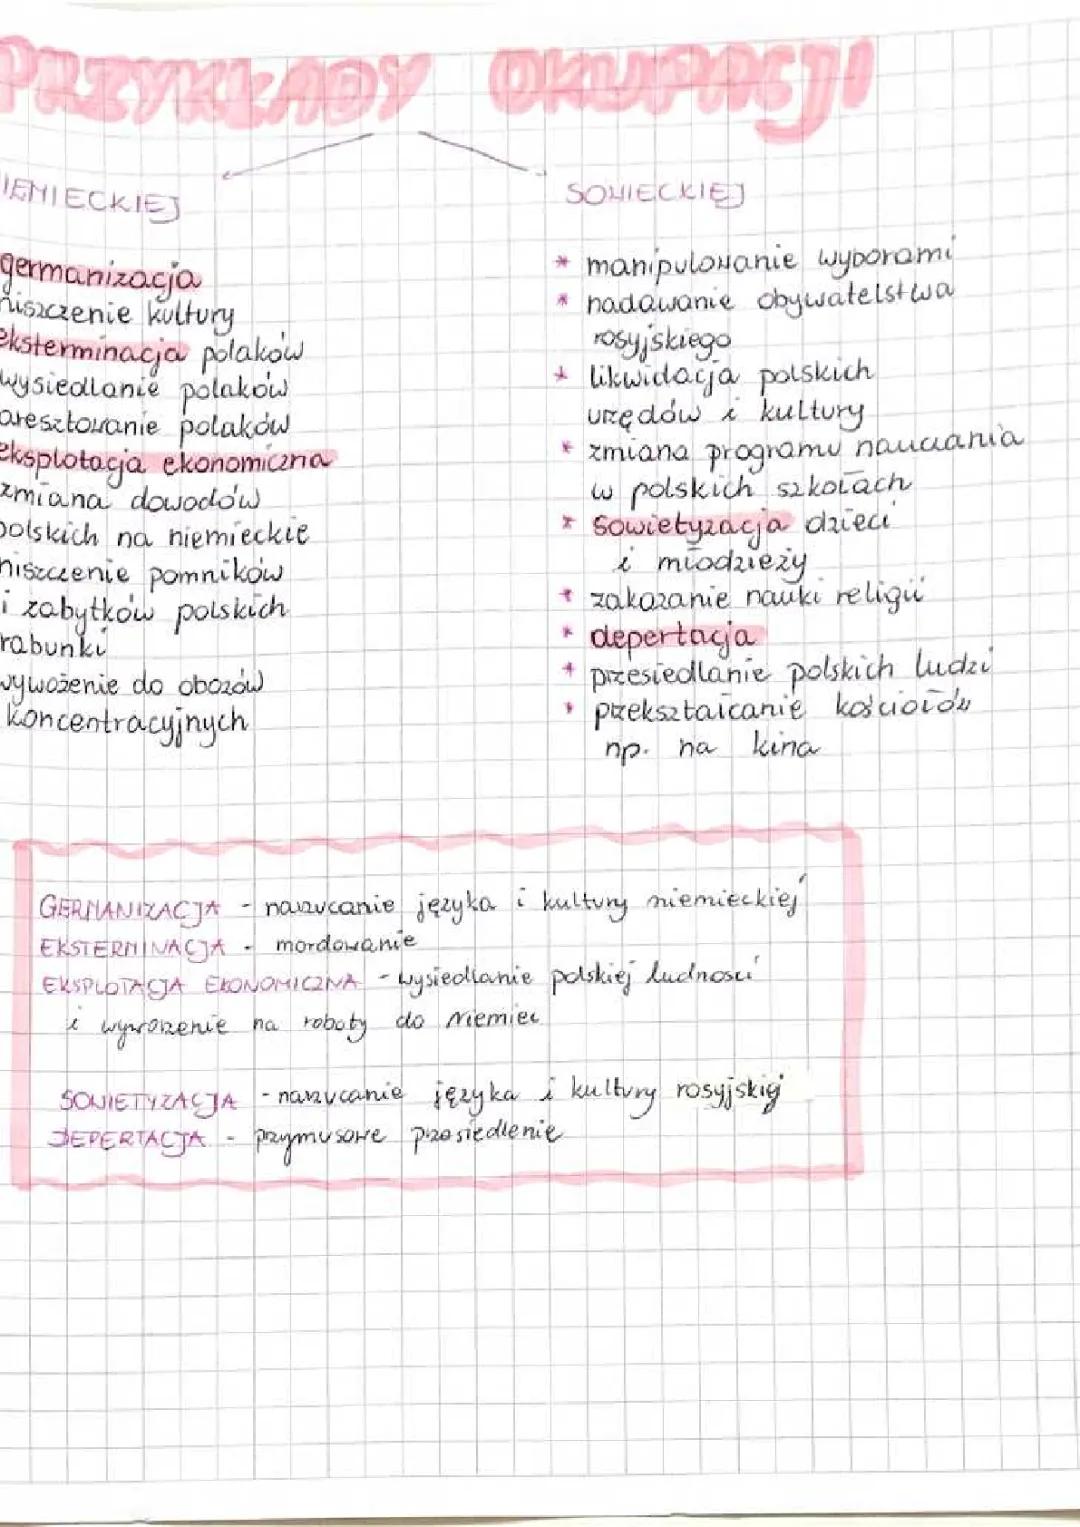 PRZYKŁADY OKUPACJI
IEMIECKIEJ
germanizacja
niszczenie kultury
eksterminacja polaków
wysiedlanie polaków
aresztowanie polaków
eksplotacja ekonomiczna
zmiana dowodów
polskich na niemieckie
niszczenie pomników
i zabytków polskich
rabunki
wywożenie do obozów
koncentracyjnych
SOWIECKIEJ
* manipulowanie wyborami
* nadawanie obywatelstwa
rosyjskiego
* likwidacja polskich
urzędów i kultury
* zmiana programu nauczania
w polskich szkołach
* sowietyzacja dzieci
i młodzieży
* zakazanie nauki religii
* depertacja
* przesiedlanie polskich ludzi
* przekształcanie kościołów
np. na kina
GERMANIZACJA - narzucanie języka i kultury niemieckiej
EKSTERMINACJA - mordowanie
EKSPLOTACJA EKONOMICZNA - wysiedlanie polskiej ludności
i wywożenie na roboty do Niemiec
SOWIETYZACJA - narzucanie języka i kultury rosyjskiej
DEPERTACJA - przymusowe przesiedlenie